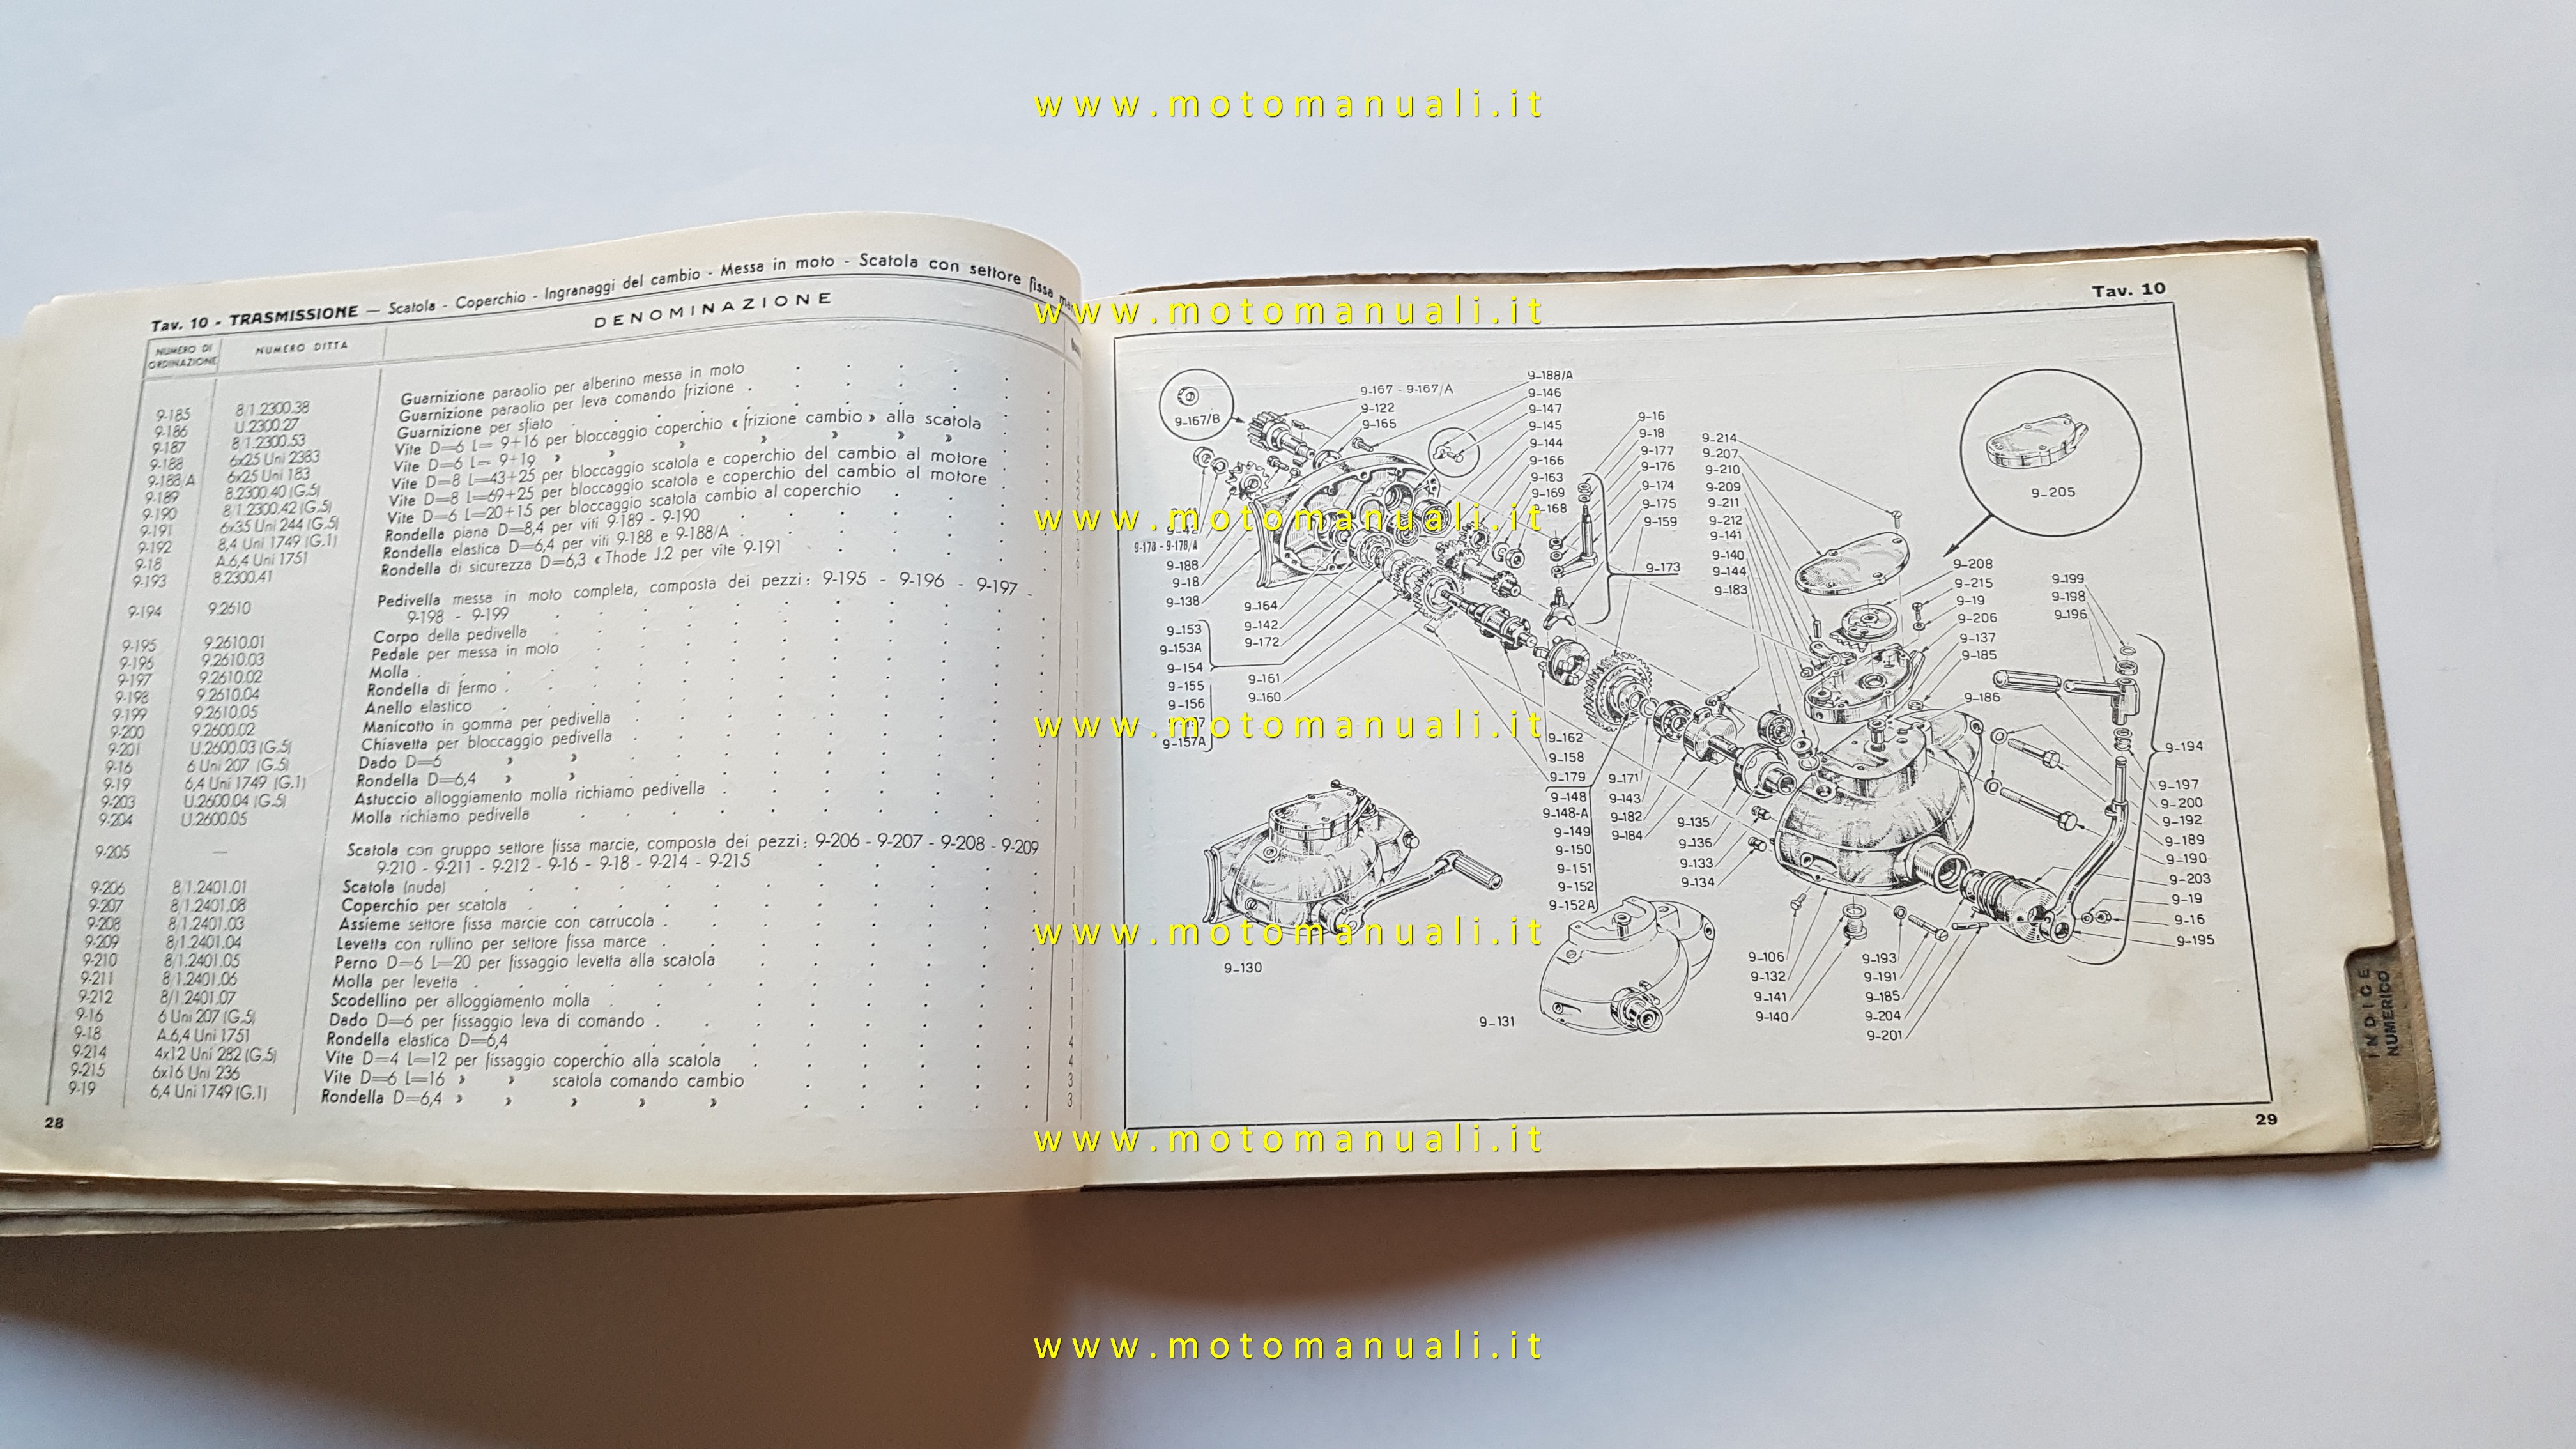 www.motomanuali.it
Tav. 10 - TRASMISSIONE — Scatola - Coperchio - Ingranaggi del cambio - Messa in moto - Scatola con settore fissa
NUMERO DI ORDINAZIONE NUMERO DITTA DENOMINAZIONE
9-185 8/1.2300.38 Guarnizione paraolio per alberino messa in moto
9-186 U.2300.27 Guarnizione paraolio per leva comando frizione
9-187 8/1.2300.53 Guarnizione per sfiato
9-188 6x25 Uni 2383 Vite D=6 L= 9+16 per bloccaggio coperchio « frizione cambio » alla scatola
9-188/A 6x25 Uni 183 Vite D=6 L= 9+19 » » » » » »
9-189 8.2300.40 (G.5) Vite D=8 L=43+25 per bloccaggio scatola e coperchio del cambio al motore
9-190 8/1.2300.42 (G.5) Vite D=8 L=69+25 per bloccaggio scatola e coperchio del cambio al motore
9-191 6x35 Uni 244 (G.5) Vite D=6 L=20+15 per bloccaggio scatola cambio al coperchio
9-192 8,4 Uni 1749 (G.1) Rondella piana D=8,4 per viti 9-189 - 9-190
9-18 A.6,4 Uni 1751 Rondella elastica D=6,4 per viti 9-188 e 9-188/A
9-193 8.2300.41 Rondella di sicurezza D=6,3 « Thode J.2 per vite 9-191
9-194 9.2610 Pedivella messa in moto completa, composta dei pezzi: 9-195 - 9-196 - 9-197 -
9-198 - 9-199
9-195 9.2610.01 Corpo della pedivella
9-196 9.2610.03 Pedale per messa in moto
9-197 9.2610.02 Molla
9-198 9.2610.04 Rondella di fermo
9-199 9.2610.05 Anello elastico
9-200 9.2600.02 Manicotto in gomma per pedivella
9-201 U.2600.03 (G.5) Chiavetta per bloccaggio pedivella
9-16 6 Uni 207 (G.5) Dado D=6 » »
9-19 6,4 Uni 1749 (G.1) Rondella D=6,4 » »
9-203 U.2600.04 (G.5) Astuccio alloggiamento molla richiamo pedivella
9-204 U.2600.05 Molla richiamo pedivella
9-205 — Scatola con gruppo settore fissa marcie, composta dei pezzi: 9-206 - 9-207 - 9-208 - 9-209
9-210 - 9-211 - 9-212 - 9-16 - 9-18 - 9-214 - 9-215
9-206 8/1.2401.01 Scatola (nuda)
9-207 8/1.2401.08 Coperchio per scatola
9-208 8/1.2401.03 Assieme settore fissa marcie con carrucola
9-209 8/1.2401.04 Levetta con rullino per settore fissa marce
9-210 8/1.2401.05 Perno D=6 L=20 per fissaggio levetta alla scatola
9-211 8/1.2401.06 Molla per levetta
9-212 8/1.2401.07 Scodellino per alloggiamento molla
9-16 6 Uni 207 (G.5) Dado D=6 per fissaggio leva di comando
9-18 A.6,4 Uni 1751 Rondella elastica D=6,4
9-214 4x12 Uni 282 (G.5) Vite D=4 L=12 per fissaggio coperchio alla scatola
9-215 6x16 Uni 236 Vite D=6 L=16 » » scatola comando cambio
9-19 6,4 Uni 1749 (G.1) Rondella D=6,4 » » » » »
28
www.motomanuali.it
www.motomanuali.it
www.motomanuali.it
www.motomanuali.it
www.motomanuali.it
www.motomanuali.it
Tav. 10
9-167/B
9-167 - 9-167/A
9-122
9-165
9-188/A
9-146
9-147
9-145
9-144
9-166
9-163
9-169
9-168
9-16
9-18
9-177
9-176
9-174
9-175
9-159
9-173
9-214
9-207
9-210
9-209
9-211
9-212
9-141
9-140
9-144
9-183
9-205
9-208
9-215
9-19
9-206
9-137
9-185
9-186
9-199
9-198
9-196
9-178 - 9-178/A
9-188
9-18
9-138
9-153
9-153A
9-154
9-155
9-156
9-157A
9-164
9-142
9-172
9-161
9-160
9-162
9-158
9-179
9-148
9-148-A
9-149
9-150
9-151
9-152
9-152A
9-171
9-143
9-182
9-184
9-135
9-136
9-133
9-134
9-194
9-197
9-200
9-192
9-189
9-190
9-203
9-19
9-16
9-195
9-106
9-132
9-141
9-140
9-193
9-191
9-185
9-204
9-201
9-130
9-131
29
INDICE
NUMERICO